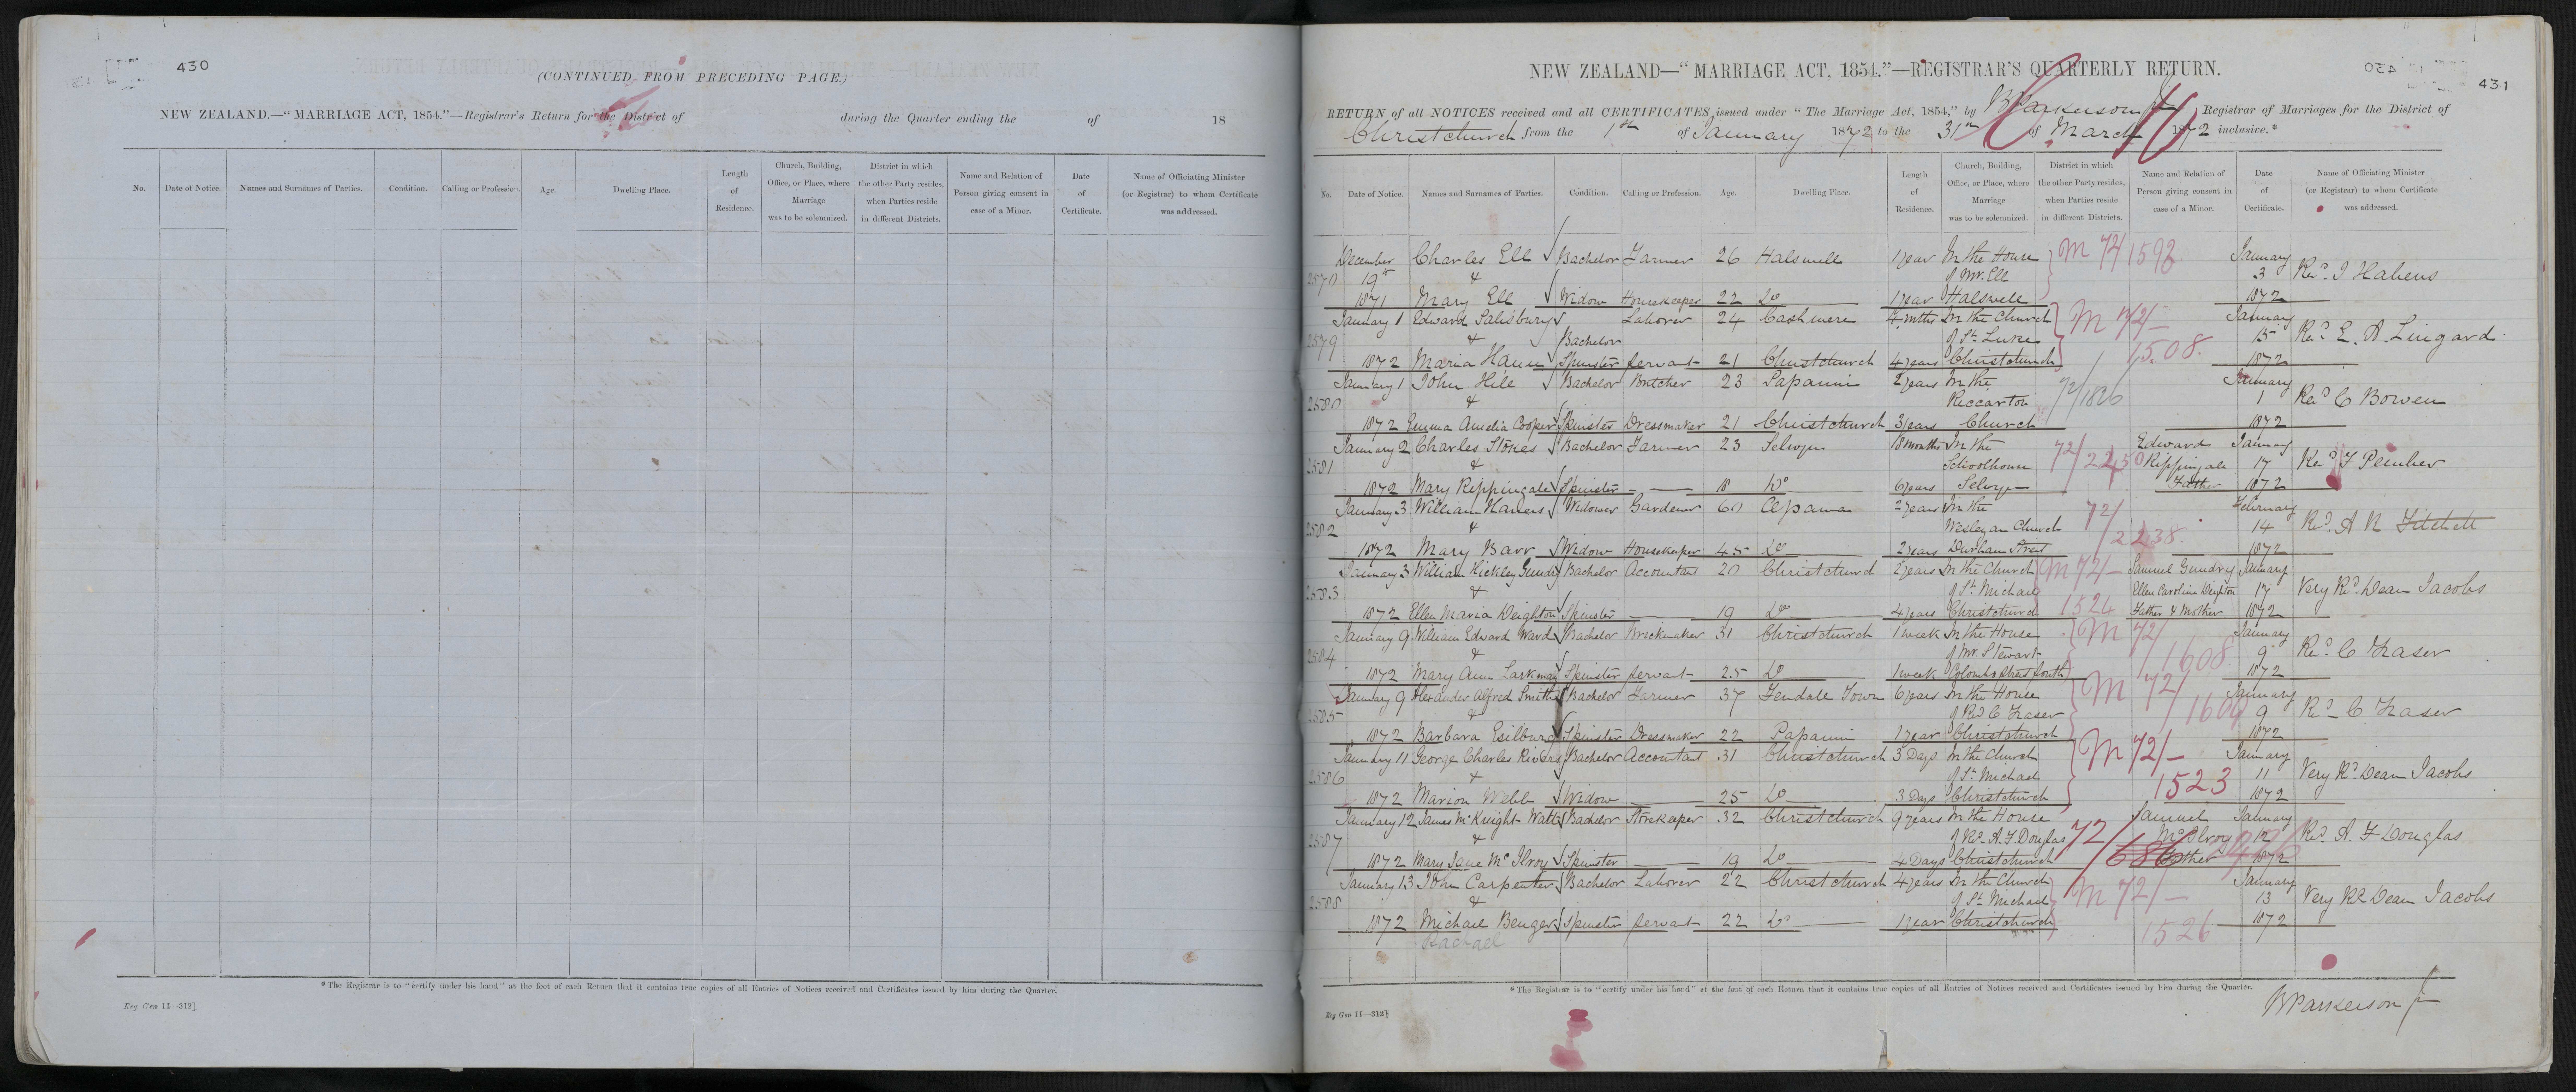 430
(CONTINUED FROM PRECEDING PAGE.)
NEW ZEALAND.—"MARRIAGE ACT, 1854."—Registrar's Return for the District of during the Quarter ending the of 18
No. Date of Notice. Names and Surnames of Parties. Condition. Calling or Profession. Age. Dwelling Place. Length of Residence. Church, Building, Office, or Place, where Marriage was to be solemnized. District in which the other Party resides, when Parties reside in different Districts. Name and Relation of Person giving consent in case of a Minor. Date of Certificate. Name of Officiating Minister (or Registrar) to whom Certificate was addressed.
*The Registrar is to "certify under his hand" at the foot of each Return that it contains true copies of all Entries of Notices received and Certificates issued by him during the Quarter.
Reg Gen 11—312]
431
NEW ZEALAND—"MARRIAGE ACT, 1854."—REGISTRAR'S QUARTERLY RETURN.
RETURN of all NOTICES received and all CERTIFICATES issued under "The Marriage Act, 1854," by Parkerson Jr Registrar of Marriages for the District of
Christchurch from the 1st of January 1872 to the 31st of March 1872 inclusive.*
No. Date of Notice. Names and Surnames of Parties. Condition. Calling or Profession. Age. Dwelling Place. Length of Residence. Church, Building, Office, or Place, where Marriage was to be solemnized. District in which the other Party resides, when Parties reside in different Districts. Name and Relation of Person giving consent in case of a Minor. Date of Certificate. Name of Officiating Minister (or Registrar) to whom Certificate was addressed.
December Charles Ell Bachelor Farmer 26 Halswell 1 year In the House M 72/1592 January
19th & of Mr. Ell 3 Revd. Habens
1871 Mary Ell Widow Housekeeper 22 Do 1 year Halswell 1872
January 1 Edward Salisbury Laborer 24 Cashmere 4 mths In the Church M 72/- January
2579 & Bachelor of St. Luke 1508 15 Revd. E. A. Lingard
1872 Maria Spinster Servant 21 Christchurch 4 years Christchurch 1872
January 1 John Hill Bachelor Butcher 23 Papanui 2 years In the January
2580 & Riccarton 72/1826 1 Revd. C Bowen
1872 Emma Amelia Cooper Spinster Dressmaker 21 Christchurch 3 years Church 1872
January 2 Charles Stokes Bachelor Farmer 23 Selwyn 18 months In the Edward January
2581 & Schoolhouse 72/2250 Rippingale 17 Revd. F Pember
1872 Mary Rippingale Spinster 18 Do 6 years Selwyn Father 1872
January 3 William Widower Gardener 60 Opawa 2 years In the 72/ February
2582 & Wesleyan Church 2238 14 Revd. A R Fitchett
1872 Mary Barr Widow Housekeeper 45 Do 2 years Durham Street 1872
January 3 William Hickley Gundry Bachelor Accountant 20 Christchurch 2 years In the Church M 72- Samuel Gundry January
2583 & of St. Michael Ellen Caroline Deighton 17 Very Revd. Dean Jacobs
1872 Ellen Maria Deighton Spinster 19 Do 4 years Christchurch 1524 Father & Mother 1872
January 9 William Edward Ward Bachelor Brickmaker 31 Christchurch 1 week In the House M 72/ January
2584 & of Mr. Stewart 1608 9 Revd. C Fraser
1872 Mary Ann Larkman Spinster Servant 25 Do 1 week Colombo Street South 1872
January 9 Alexander Alfred Smith Bachelor Farmer 37 Fendale Town 6 years In the House M 72/ January
2585 & of Revd C Fraser 1609 9 Revd. C. Fraser
1872 Barbara Spinster Dressmaker 22 Papanui 1 year Christchurch 1872
January 11 George Charles Rivers Bachelor Accountant 31 Christchurch 3 Days In the Church M 72/- January
2586 & of St. Michael 1523 11 Very Revd. Dean Jacobs
1872 Marion Webb Widow 25 Do 3 Days Christchurch 1872
January 12 James McKnight Watt Bachelor Storekeeper 32 Christchurch 9 years In the House Samuel January
2587 & of Revd. A. F Douglas 72/686 McIlroy 12 Revd. A. F Douglas
1872 Mary Jane McIlroy Spinster 19 Do 4 Days Christchurch Father 1872
January 13 John Carpenter Bachelor Laborer 22 Christchurch 4 years In the Church M 72/- January
2588 & of St. Michael 13 Very Revd. Dean Jacobs
1872 Michael Benger Spinster Servant 22 Do 1 year Christchurch 1526 1872
Rachael
*The Registrar is to "certify under his hand" at the foot of each Return that it contains true copies of all Entries of Notices received and Certificates issued by him during the Quarter.
Reg Gen 11—312]
Parkerson Jr